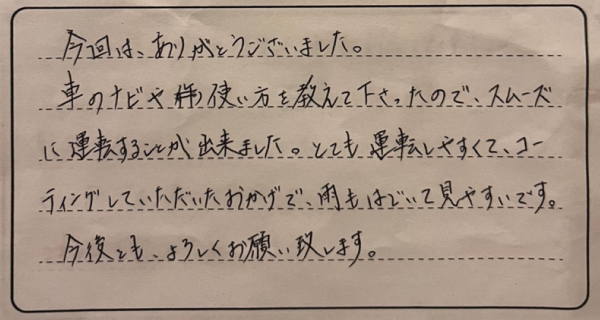 今回は、ありがとうございました。
車のナビや使い方を教えて下さったので、スムーズ
に運転することが出来ました。とても運転しやすくて、コー
ティングしていただいたおかげで、雨もはじいて見やすいです。
今後とも、よろしくお願い致します。